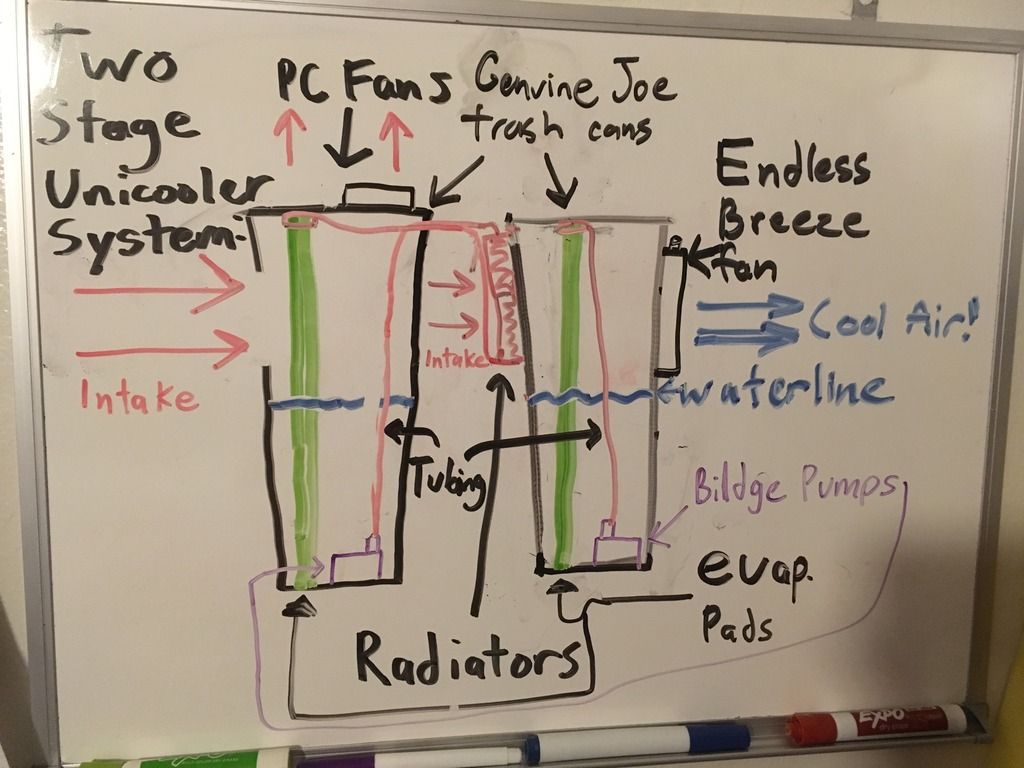 Two
Stage
Unicooler
System-
PC Fans
Genuine Joe
trash cans
Endless
Breeze
fan
Intake
Intake
Cool Air!
waterline
Tubing
Bildge Pumps
evap.
Pads
Radiators
EXPO